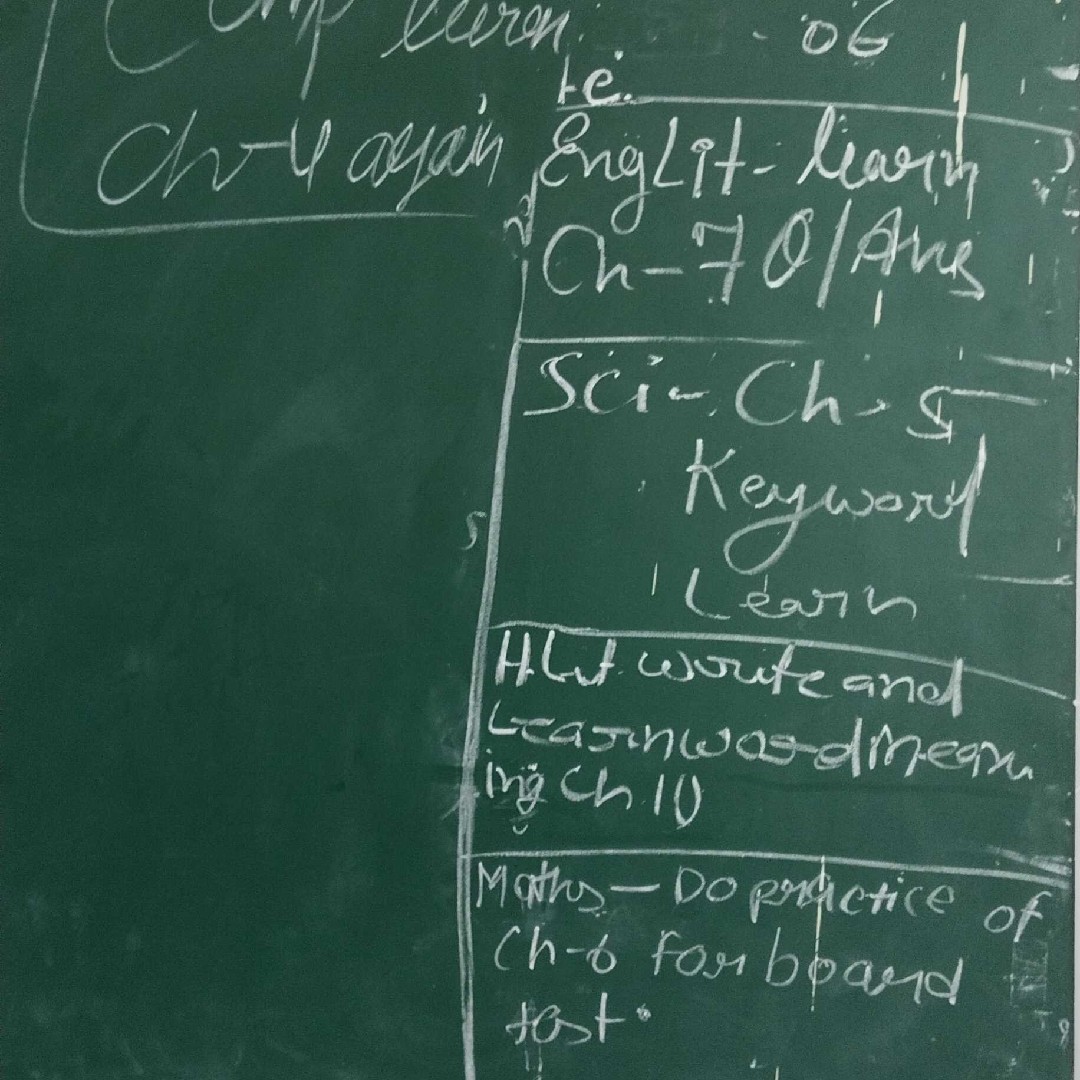 Comp learn
Ch-4 again
06
Eng Lit- learn
Ch-7 Q/Ans
Sci-. Ch- 5
Keyword
Learn
HLit. write and
Learn word Mean
ing Ch 10
Maths - Do practice of
Ch-6 for board
test.